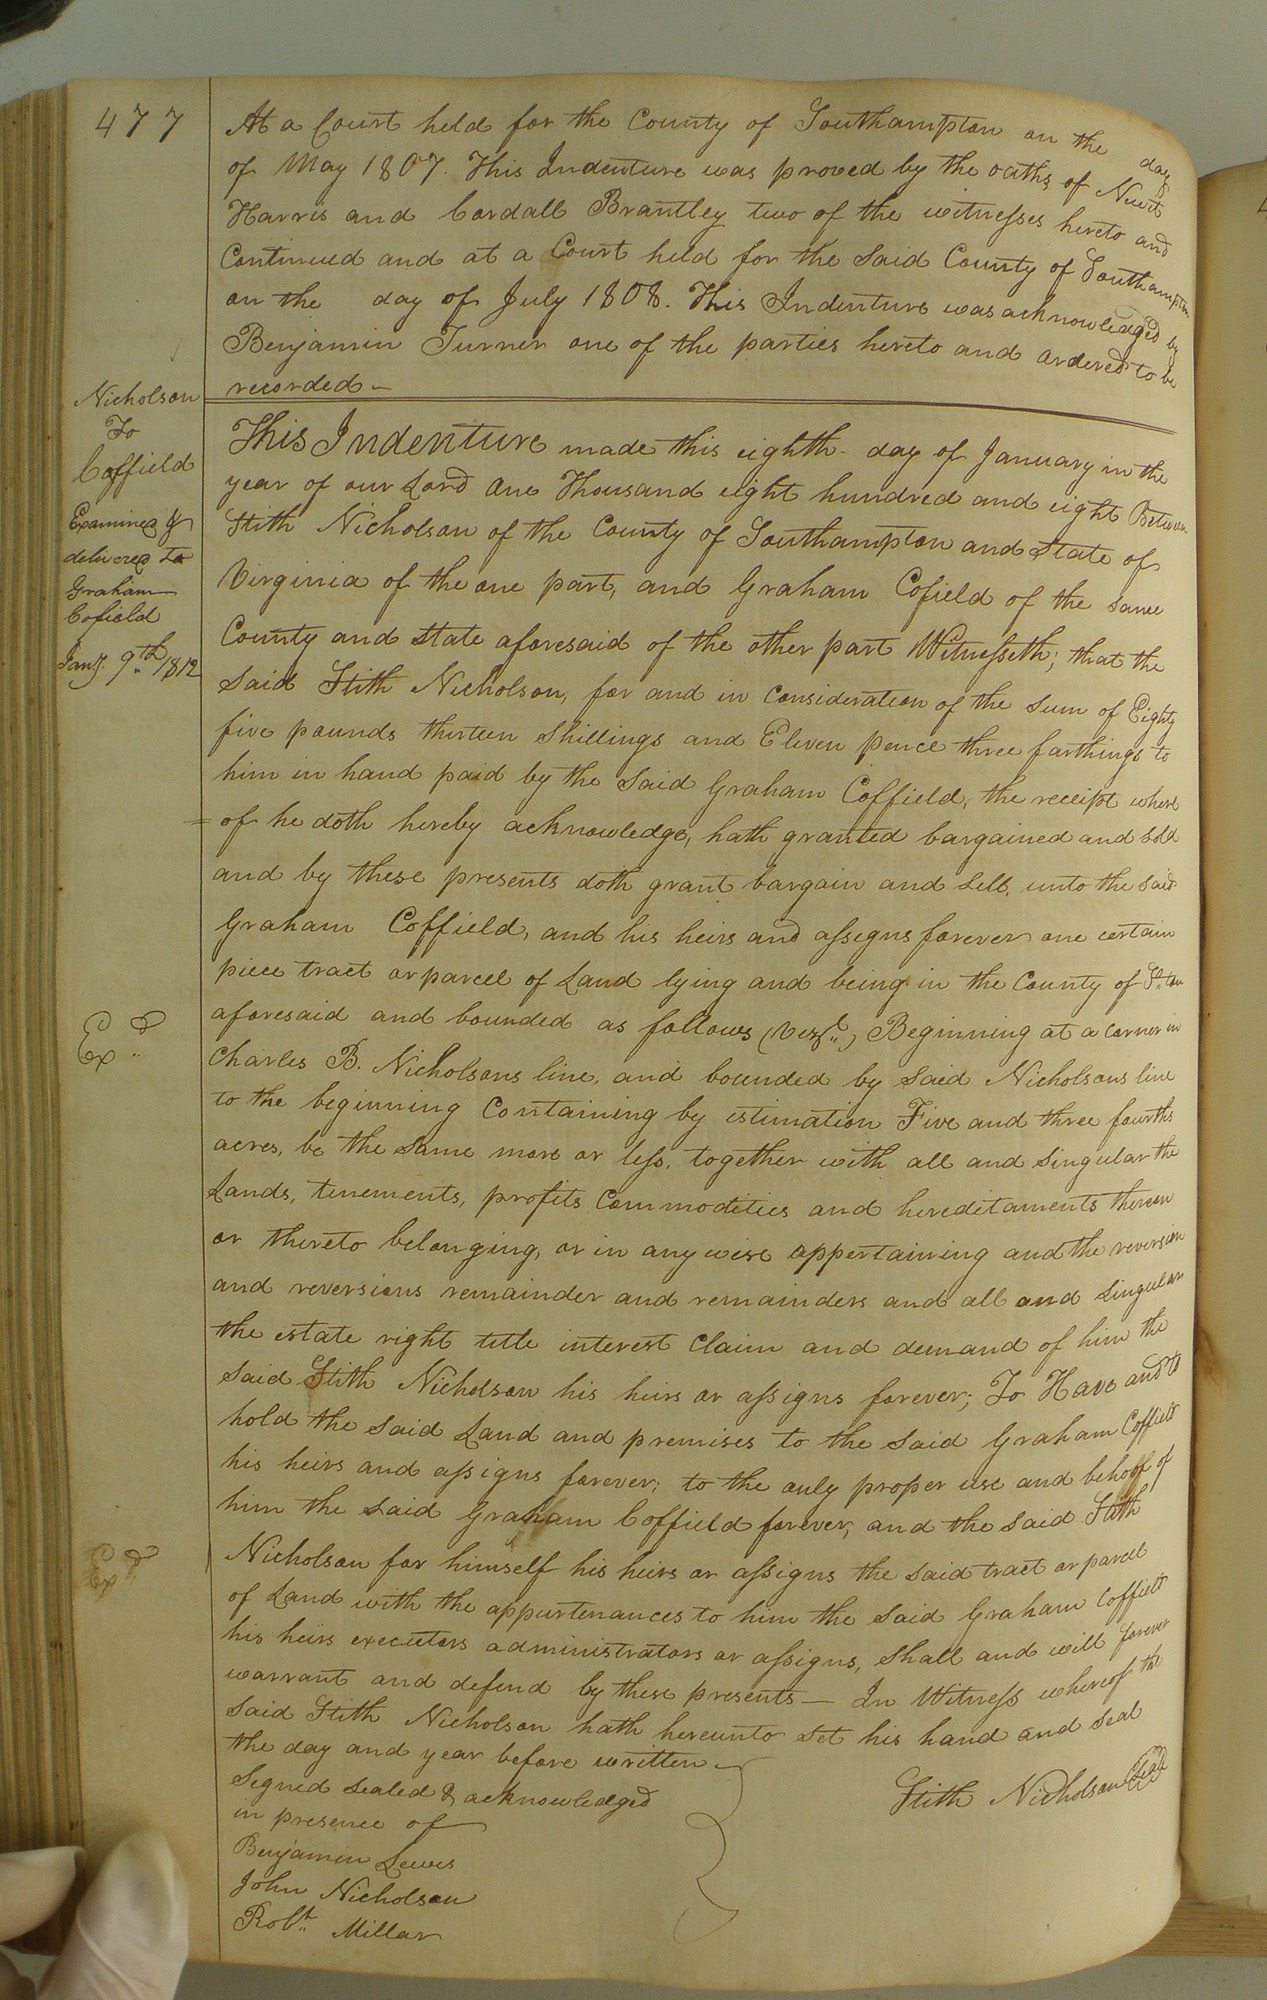 477
At a Court held for the County of Southampton on the day
of May 1807. This Indenture was proved by the oaths of Newit
Harris and Cordall Brantley two of the witnesses hereto and
Continued and at a Court held for the Said County of Southampton
on the day of July 1808. This Indenture was acknowledged by
Benjamin Turner one of the parties hereto and ordered to be
recorded
Nicholson
To
Coffield
Examined &
delivered to
Graham
Cofield
Jany. 9th 1812
This Indenture made this eighth day of January in the
year of our Lord One Thousand eight hundred and eight Between
Stith Nicholson of the County of Southampton and State of
Virginia of the one part, and Graham Cofield of the same
County and State aforesaid of the other part Witnesseth; that the
Said Stith Nicholson, for and in Consideration of the Sum of Eighty
five pounds thirteen Shillings and Eleven pence three farthings to
him in hand paid by the Said Graham Coffield, the receipt where
= of he doth hereby acknowledge, hath granted bargained and sold
and by these presents doth grant bargain and Sell, unto the said
Graham Coffield, and his heirs and assigns forever one certain
piece tract or parcel of Land lying and being in the County of S.ton
aforesaid and bounded as follows (vizt..) Beginning at a corner in
Charles B. Nicholsons line, and bounded by Said Nicholsons line
to the beginning Containing by estimation Five and three fourths
acres, be the Same more or less, together with all and Singular the
Lands, tenements, profits Commodities and hereditaments thereon
or thereto belonging, or in any wise appertaining and the reversion
and reversions remainder and remainders and all and Singular
the estate right title interest Claim and demand of him the
Said Stith Nicholson his heirs or assigns forever; To Have and to
hold the Said Land and premises to the Said Graham Coffield
his heirs and assigns forever; to the only proper use and behoof of
him the Said Graham Coffield forever, and the Said Stith
Nicholson for himself his heirs or assigns the Said tract or parcel
of Land with the appurtenances to him the Said Graham Coffield
his heirs executors administrators or assigns, Shall and will forever
warrant and defend by these presents — In Witness whereof the
Said Stith Nicholson hath hereunto Set his hand and Seal
the day and year before written
Ex.d
Ex.d
Signed Sealed & acknowledged
in presence of
Stith Nicholson (Seal)
Benjamin Lewis
John Nicholson
Robt.. Millar